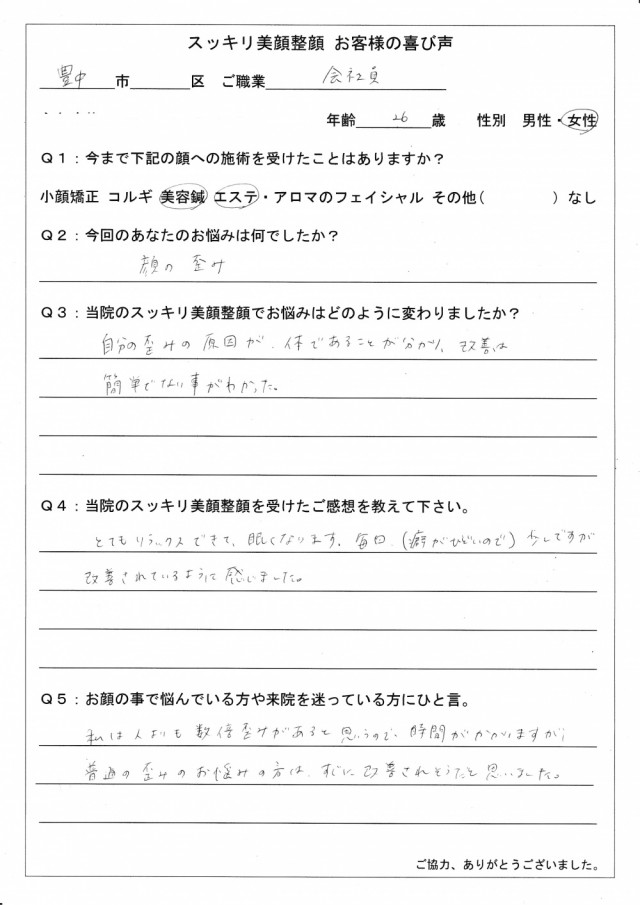 スッキリ美顔整顔 お客様の喜び声
豊中 市 区 ご職業 会社員
年齢 26 歳 性別 男性・女性
Q1:今まで下記の顔への施術を受けたことはありますか?
小顔矯正 コルギ 美容鍼 エステ・アロマのフェイシャル その他( )なし
Q2:今回のあなたのお悩みは何でしたか?
顔の歪み
Q3:当院のスッキリ美顔整顔でお悩みはどのように変わりましたか?
自分の歪みの原因が、体であることが分かり、改善は
簡単でない事がわかった。
Q4:当院のスッキリ美顔整顔を受けたご感想を教えて下さい。
とてもリラックスできて、眠くなります。毎回、(癖がひどいので)少しですが
改善されているように感じました。
Q5:お顔の事で悩んでいる方や来院を迷っている方にひと言。
私は人よりも数倍歪みがあると思うので、時間がかかりますが、
普通の歪みのお悩みの方は、すぐに改善されそうだと思いました。
ご協力、ありがとうございました。